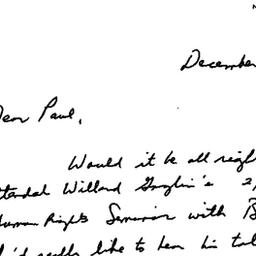 December
Dear Paul,
Would it be all righ
ttend Willard Gaylin's 2
Human Rights Seminar with B
I'd really like to hear him tal